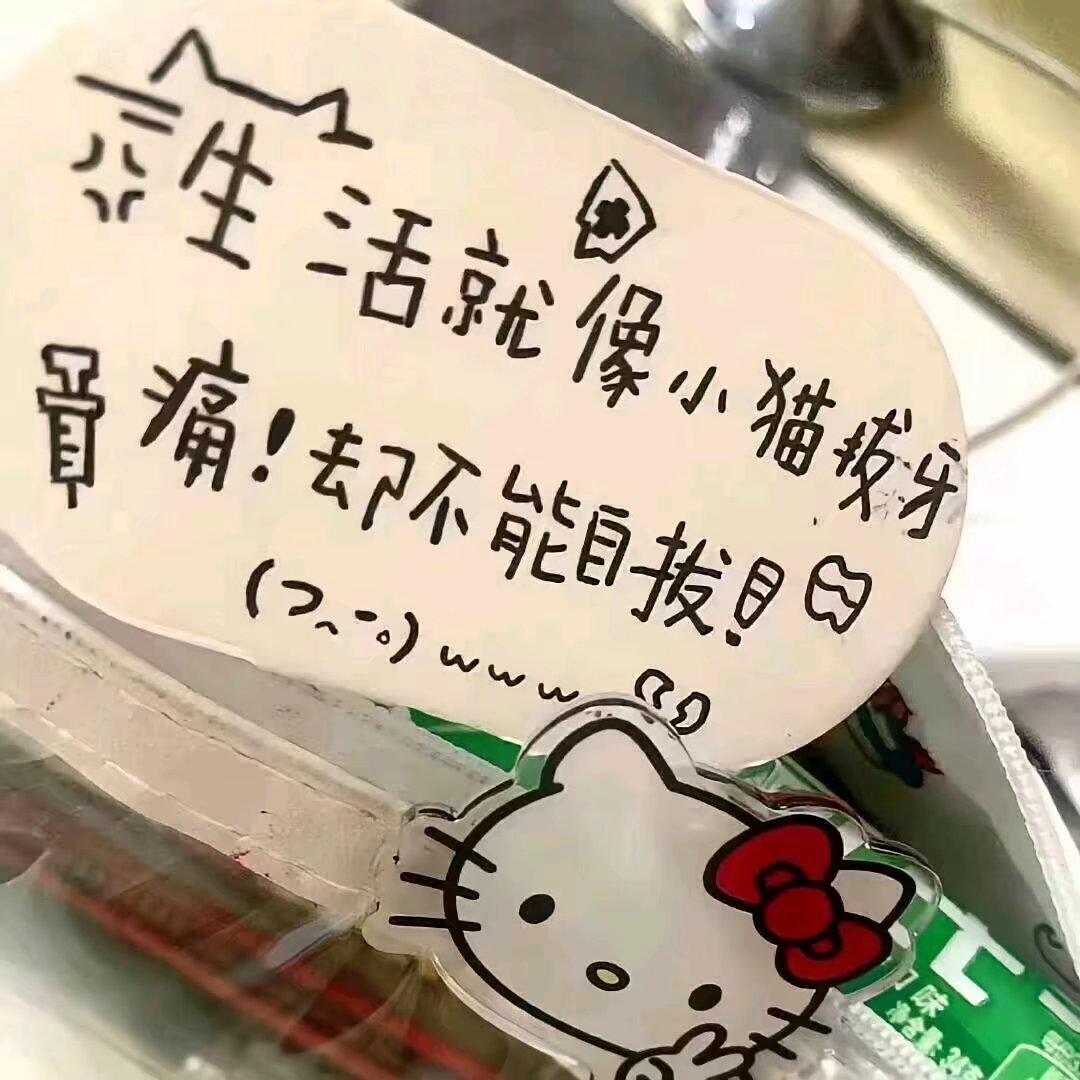 生活就像小猫拔牙
痛!却不能自拔!
(つ﹏-。)www
味